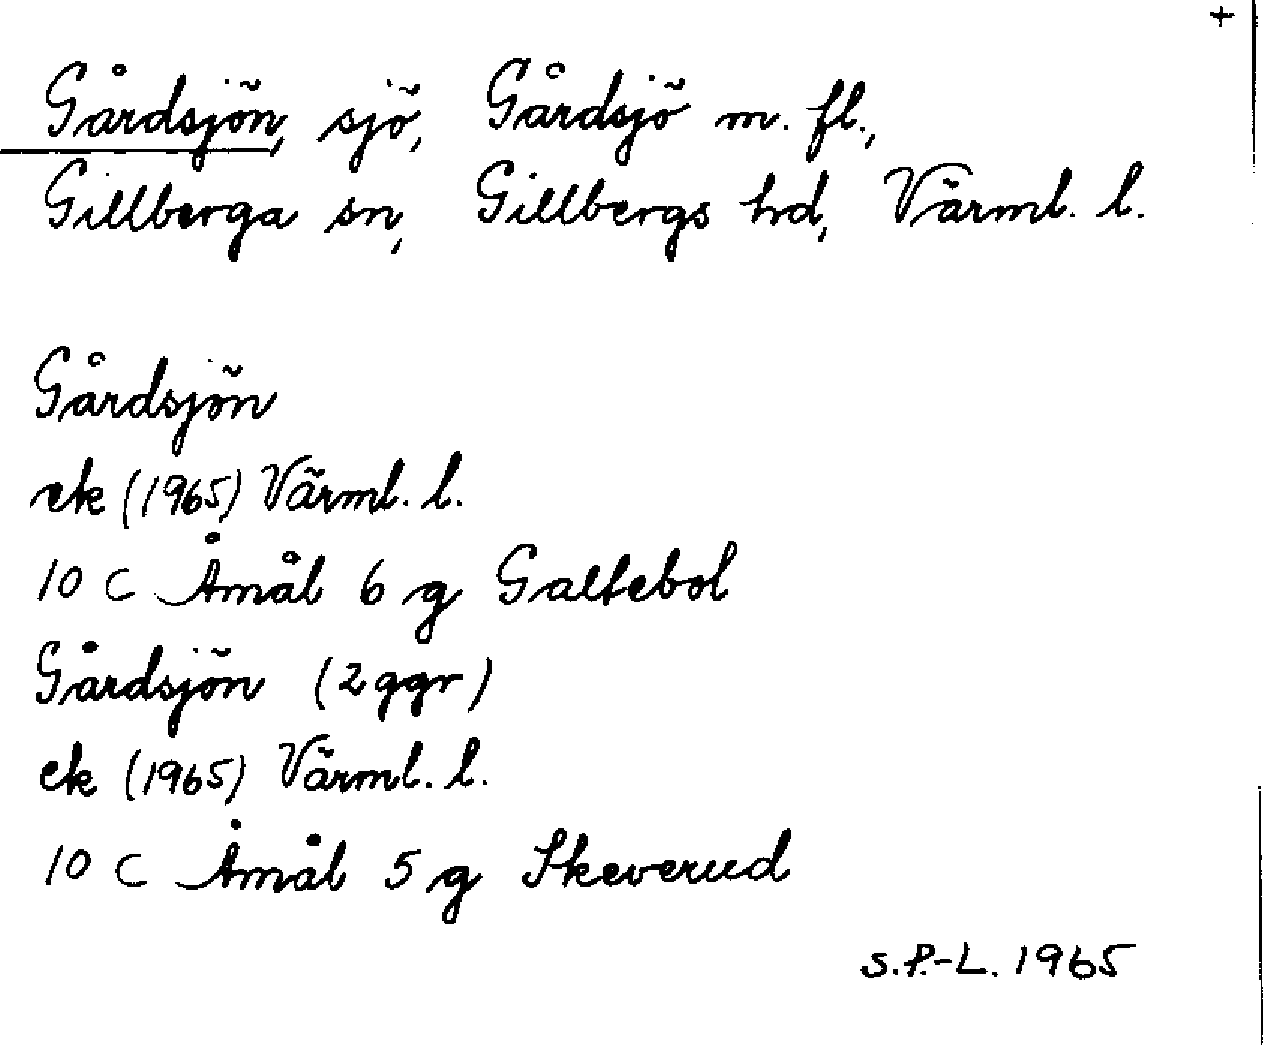 +
Gårdsjön, sjö, Gårdsjö m. fl.,
Gillberga sn, Gillbergs hd, Värml. l.
Gårdsjön
ek (1965) Värml. l.
10 C Åmål 6 g Galtebol
Gårdsjön (2 ggr)
ek (1965) Värml. l.
10 C Åmål 5 g Skeverud
S.P.-L. 1965